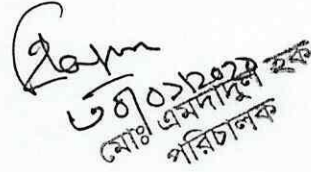 ৩০/০১/২০২০
মোঃ এমদাদুল হক
পরিচালক